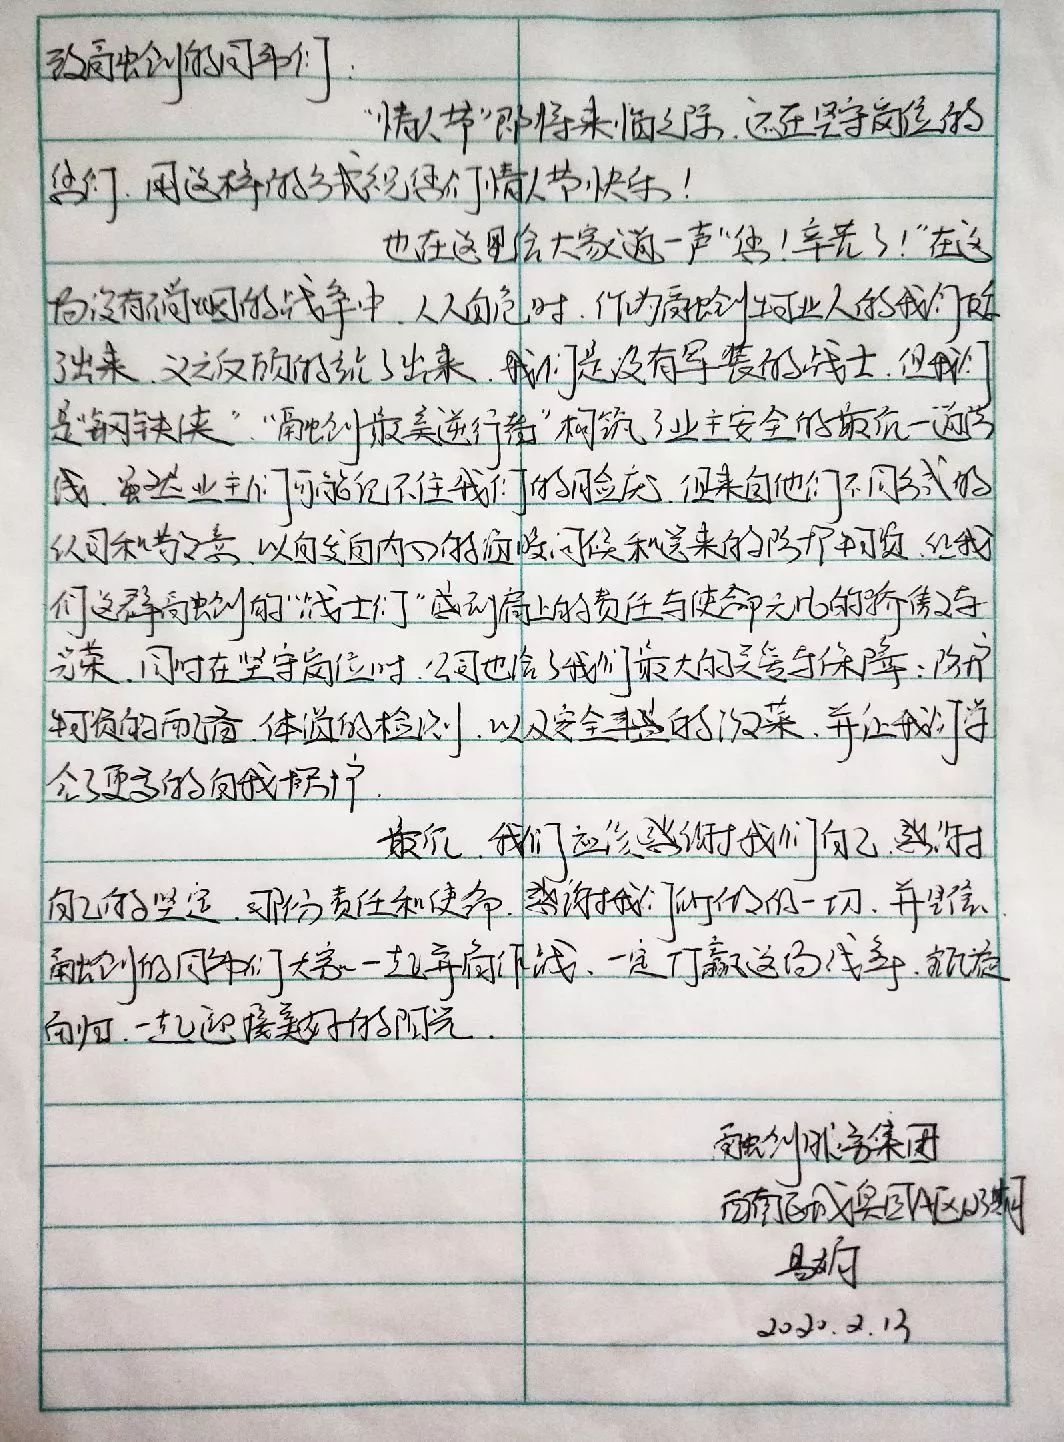 致融创的同事们：
"情人节"即将来临之际、还在坚守岗位的
您们、用这样的方式祝您们情人节快乐！
也在这里给大家道一声"您！辛苦了！"在这
场没有硝烟的战争中、人人自危时、作为融创物业人的我们站
了出来、义无反顾的站了出来、我们是没有军装的战士、但我们
是"钢铁侠"、"融创最美逆行者"构筑了业主安全的最后一道防
线、虽然业主们可能记不住我们的脸庞、但来自他们不同方式的
认可和善意、以自发自内心的问候和送来的防护物资、让我
们这群融创的"战士们"感到肩上的责任与使命无比的骄傲与
光荣、同时在坚守岗位时、公司也给了我们最大的关爱与保障：防护
物资的配备、体温的检测、以及安全的饭菜、并让我们学
会了更多的自我保护.
最后、我们应该感谢我们自己、感谢
自己的坚定、那份责任和使命、感谢我们所做的一切、并坚信、
融创的同事们大家一起并肩作战、一定打赢这场战争、凯旋
而归、一起迎接美好的阳光.
融创服务集团
西南区域奥园A区
2020.2.13